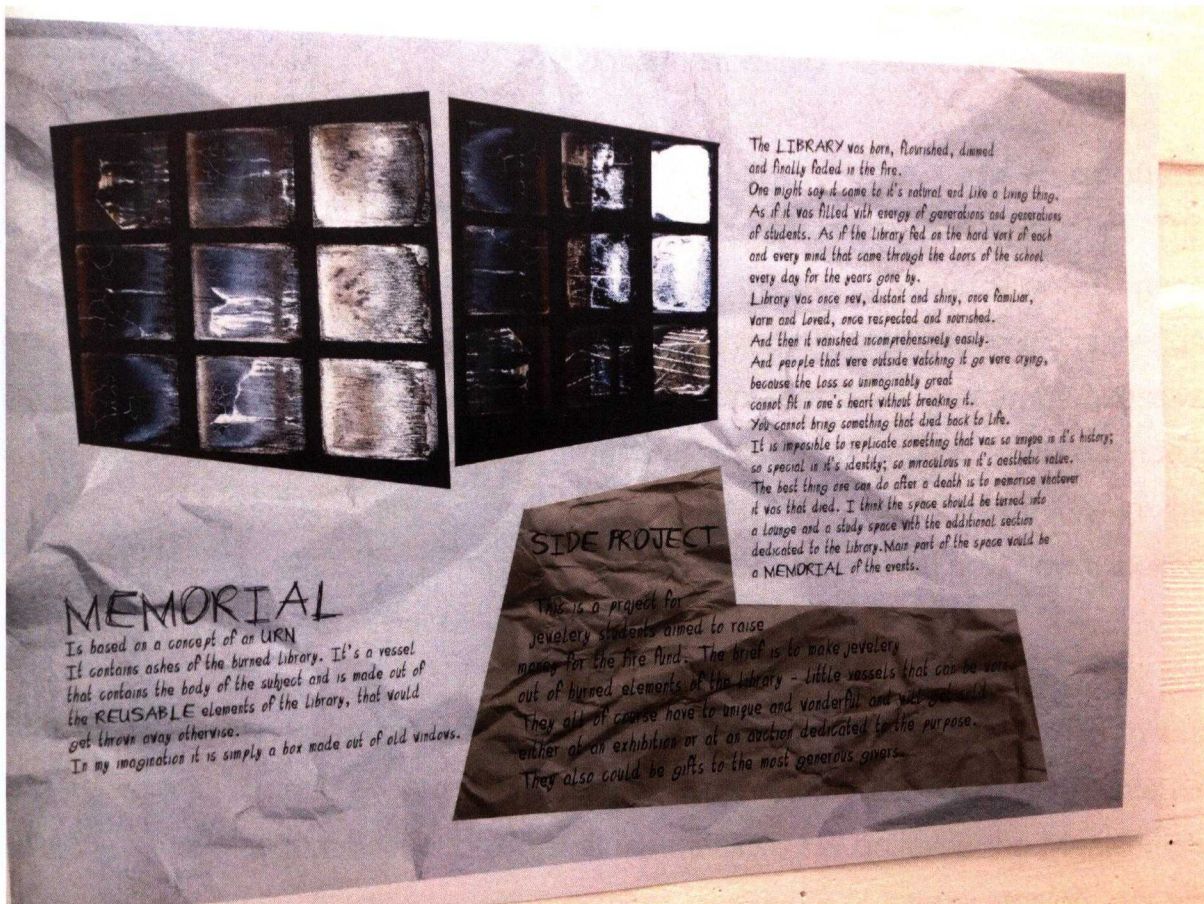 The LIBRARY was born, flourished, dimmed
and finally faded in the fire.
One might say it came to it's natural end like a living thing.
As if it was filled with energy of generations and generations
of students. As if the library fed on the hard work of each
and every mind that came through the doors of the school
every day for the years gone by.
Library was once new, distant and shiny, once familiar,
warm and loved, once respected and nourished.
And then it vanished incomprehensively easily.
And people that were outside watching it go were crying,
because the loss so unimaginably great
cannot fit in one's heart without breaking it.
You cannot bring something that died back to life.
It is imposible to replicate something that was so unique in it's history;
so special in it's identity; so miraculous in it's aesthetic value.
The best thing one can do after a death is to memorise whatever
it was that died. I think the space should be turned into
a lounge and a study space with the additional section
dedicated to the library. Main part of the space would be
a MEMORIAL of the events.
MEMORIAL
Is based on a concept of an URN
It contains ashes of the burned library. It's a vessel
that contains the body of the subject and is made out of
the REUSABLE elements of the library, that would
get thrown away otherwise.
In my imagination it is simply a box made out of old windows.
SIDE PROJECT
This is a project for
jewelery students aimed to raise
money for the fire fund. The brief is to make jewelery
out of burned elements of the library - little vessels that can be worn.
They all of course have to unique and wonderful and will get sold
either at an exhibition or at an auction dedicated to the purpose.
They also could be gifts to the most generous givers.